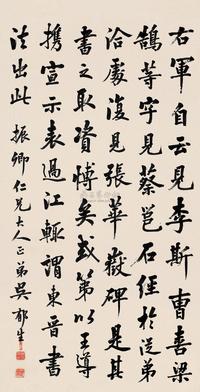 右軍自云見李斯曹喜梁
鵠等字見蔡邕石經於從弟
洽處復見張華嶽碑是其
書之取資博矣或第以王導
攜宣示表過江輒謂東晉書
法出此 振卿仁兄大人正 弟吳郁生